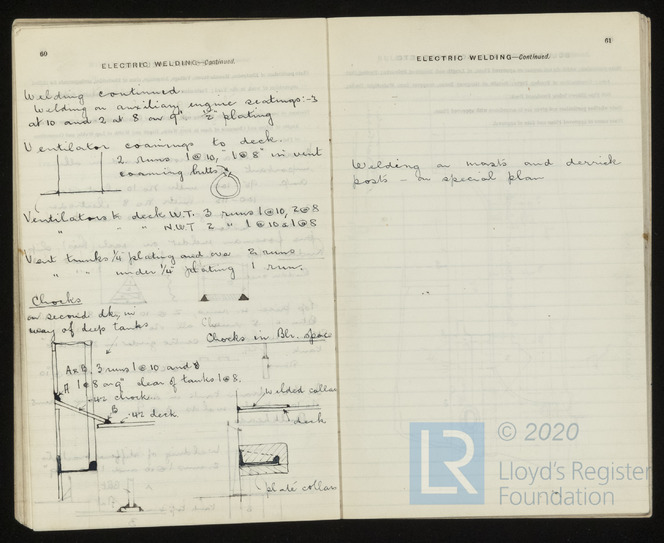 60
ELECTRIC WELDING—Continued.
Welding continued.
Welding on auxiliary engine seatings:-3
at 10 and 2 at 8 on 9" ½" plating
Ventilator coamings to deck.
2 runs 1@10, 1@8 in vent
coaming butts
Ventilators to deck W.T. 3 runs 1@10, 2@8
" " " N.W.T 2 " 1@10 & 1@8
Vent trunks ¼ plating and over 2 runs
" " under ¼" plating 1 run.
Chocks
on second dk, in
way of deep tanks
Chocks in Blr. space
A&B. 3 runs 1@10 and
A 1@8 or 9" clear of tanks 1@8.
.42 chock.
B
.42 deck.
welded collar
deck
plate collar
61
ELECTRIC WELDING—Continued.
Welding on masts and derrick
posts - on special plan
LR
© 2020
Lloyd's Register
Foundation